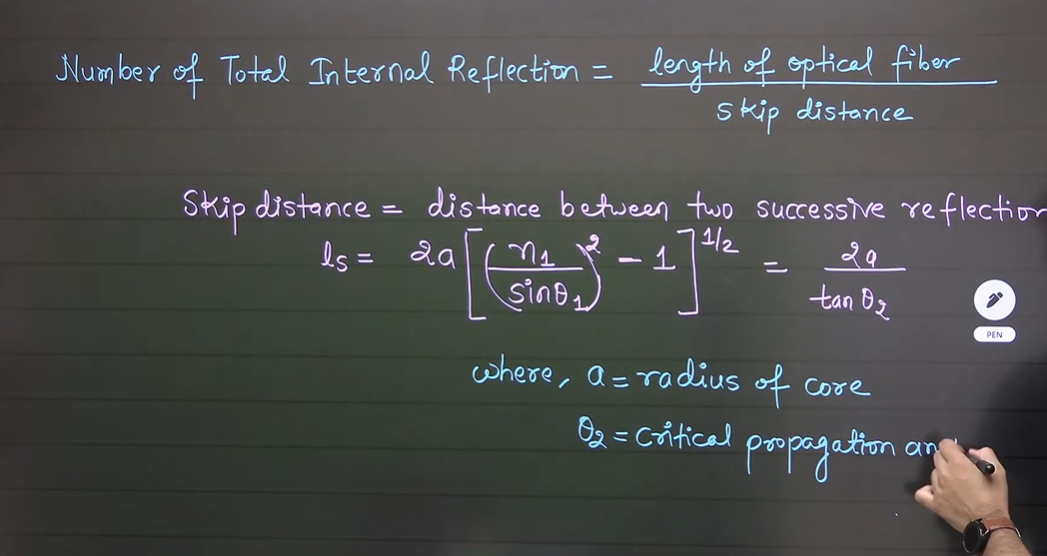 Number of Total Internal Reflection = length of optical fiber / skip distance
Skip distance = distance between two successive reflection
ls = 2a [(n1 / sinθ1)^2 - 1]^1/2 = 2a / tan θ2
PEN
where, a = radius of core
θ2 = critical propagation an